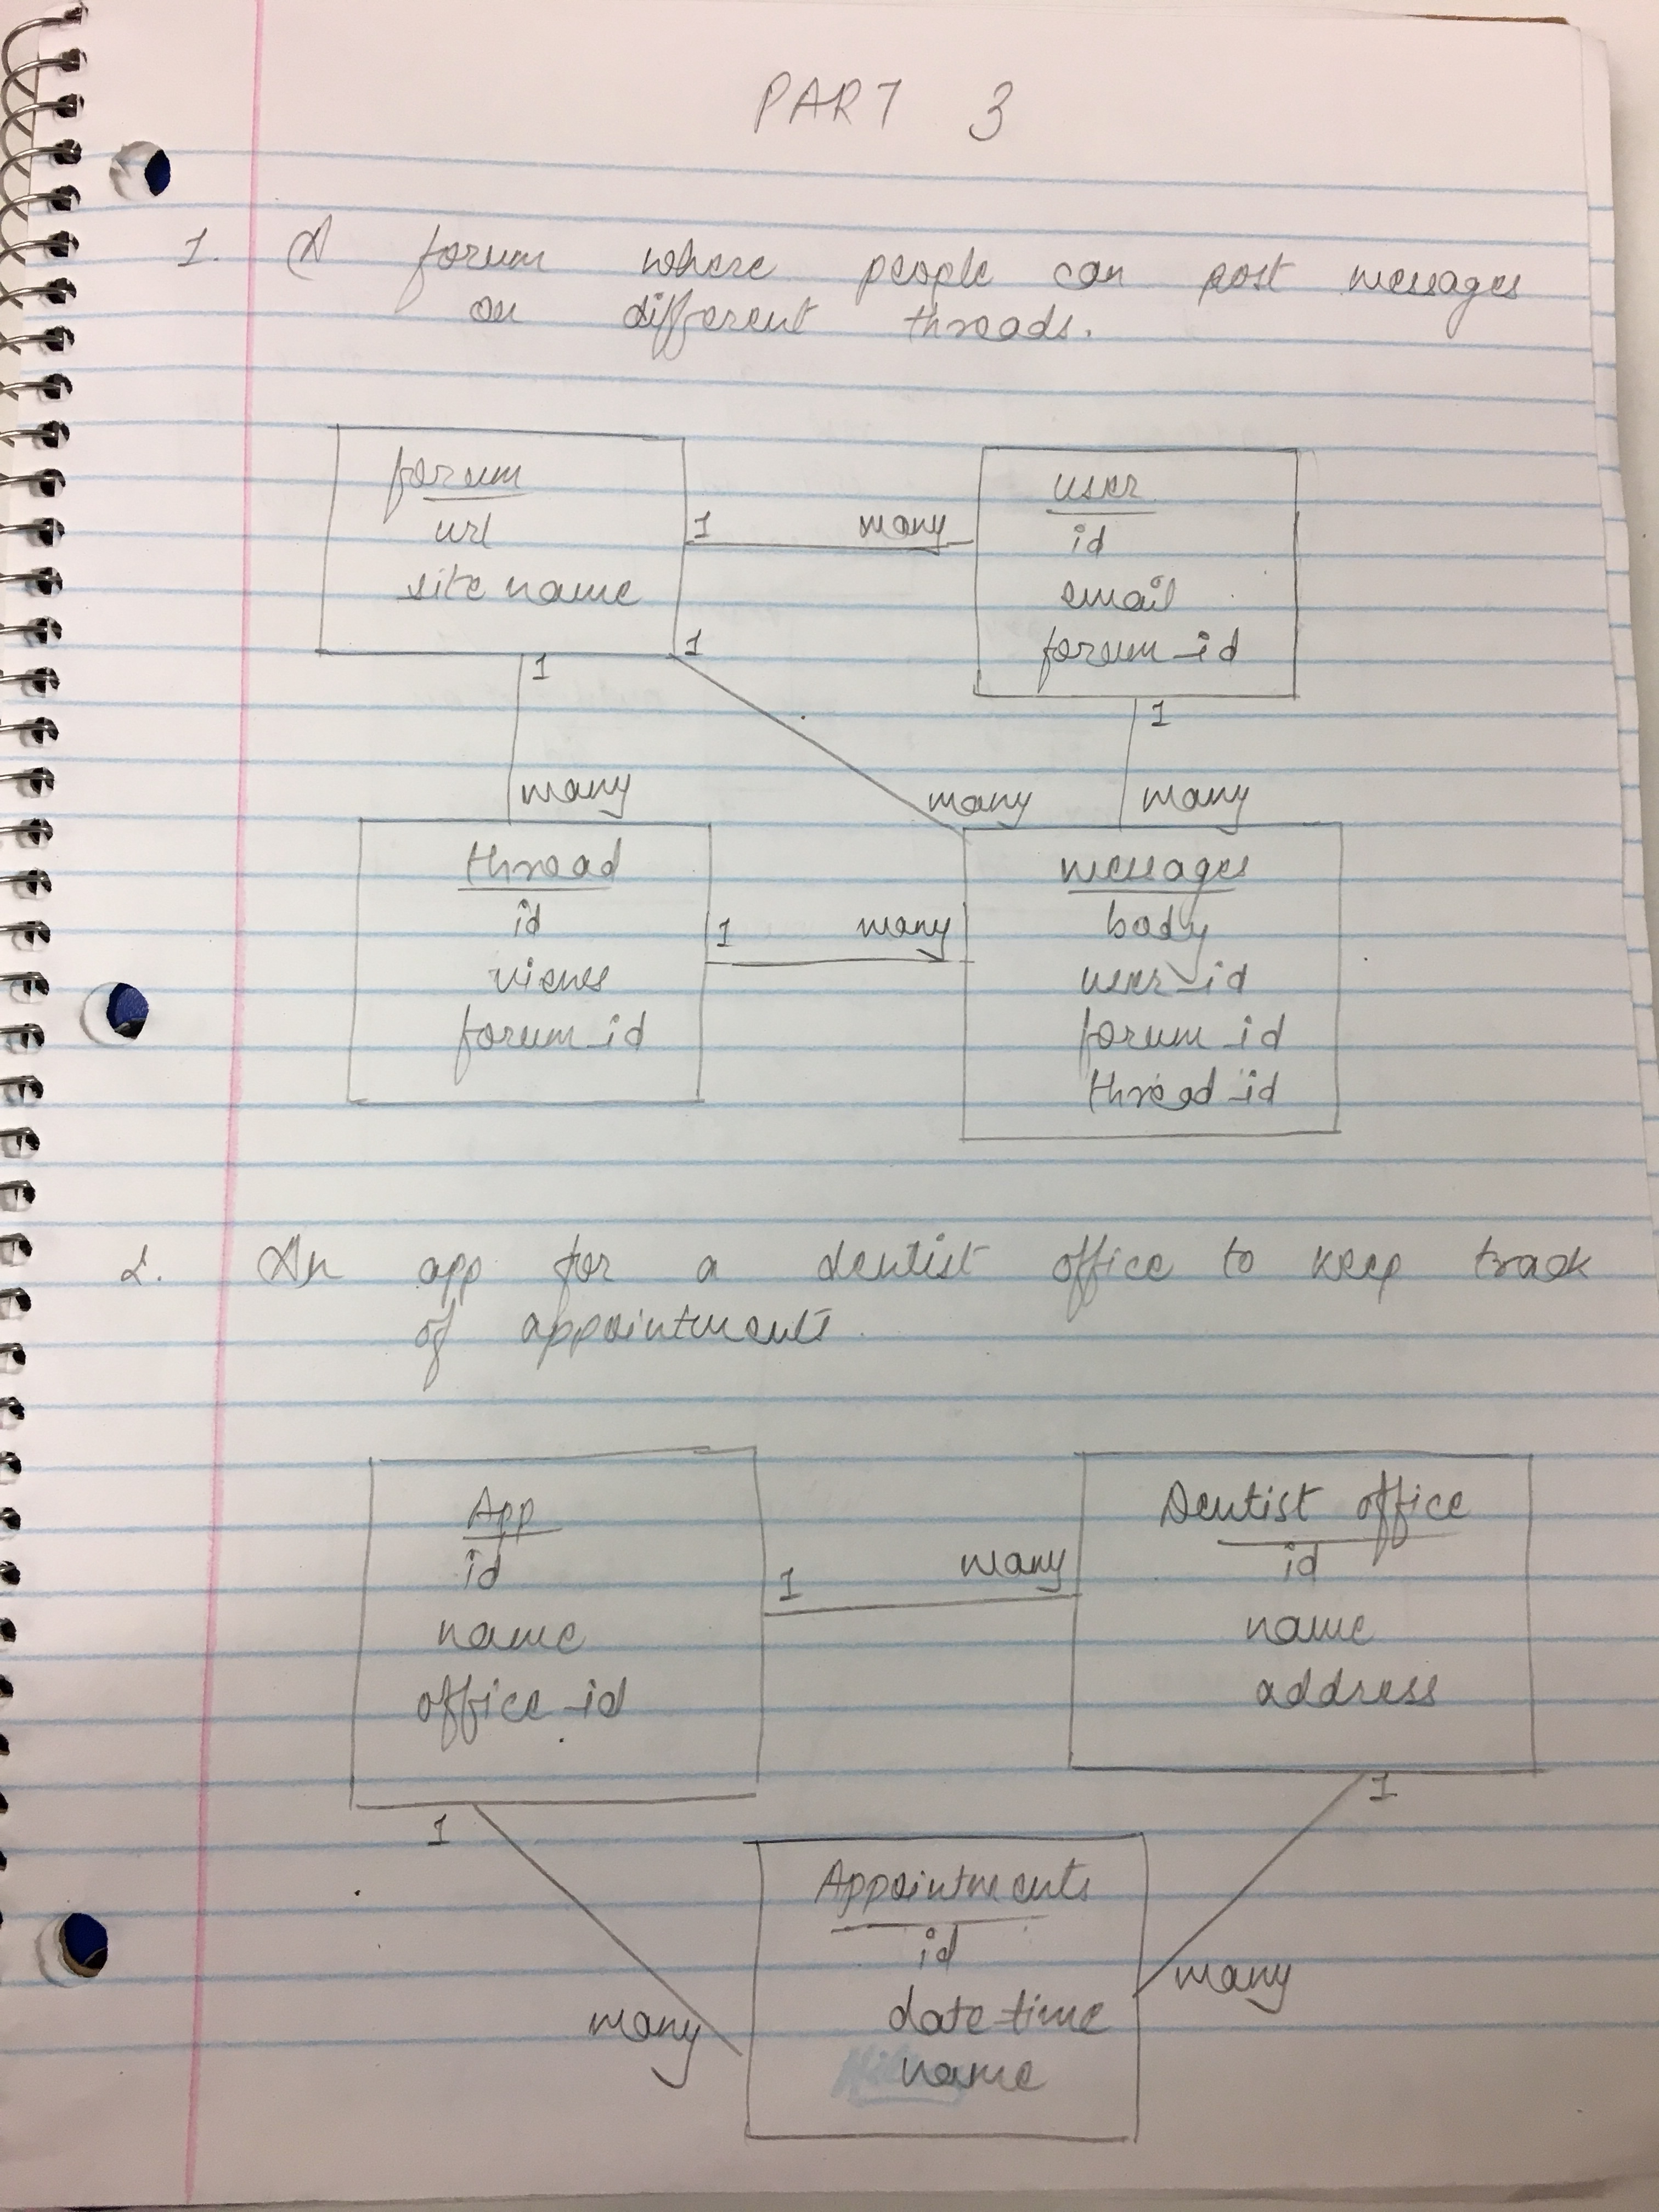 PART 3
1. A forum where people can post messages
on different threads.
forum
url
site name
1 many
user
id
email
forum_id
1
1
1
many
many
many
thread
id
views
forum_id
1 many
messages
body
user_id
forum_id
thread_id
2. An app for a dentist office to keep track
of appointments.
App
id
name
office_id
1 many
Dentist office
id
name
address
1
1
Appointments
id
date-time
name
many
many